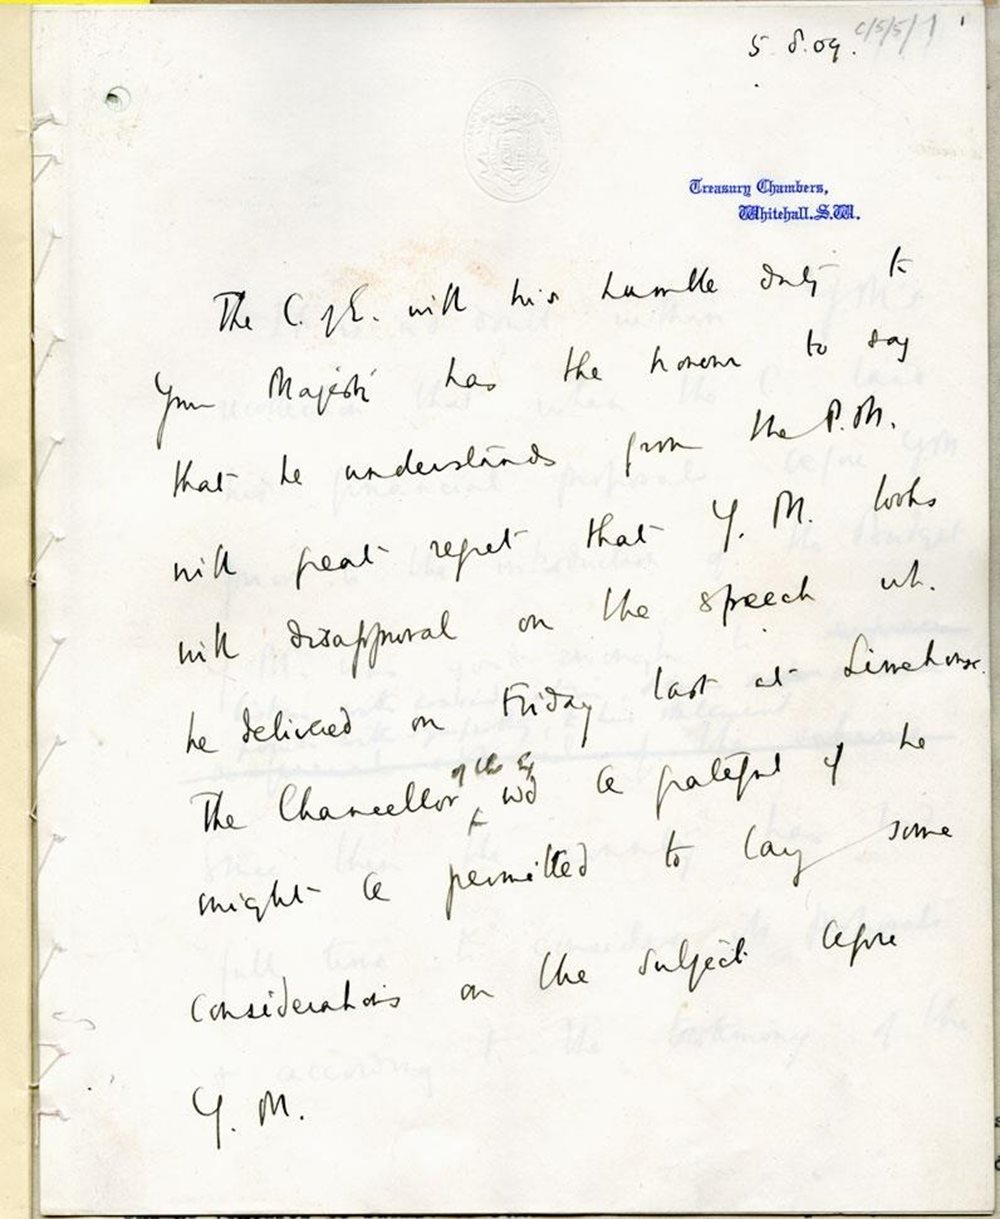 C/5/5/1
5. 8. 09.
Treasury Chambers,
Whitehall. S.W.
The C. of E. with his humble duty to
Your Majesty has the honour to say
that he understands from the P.M.
with great regret that Y. M. looks
with disapproval on the speech wh.
he delivered on Friday last at Limehouse.
The Chancellor of the Ex wd be grateful if he
might be permitted to lay some
considerations on the subject before
Y. M.